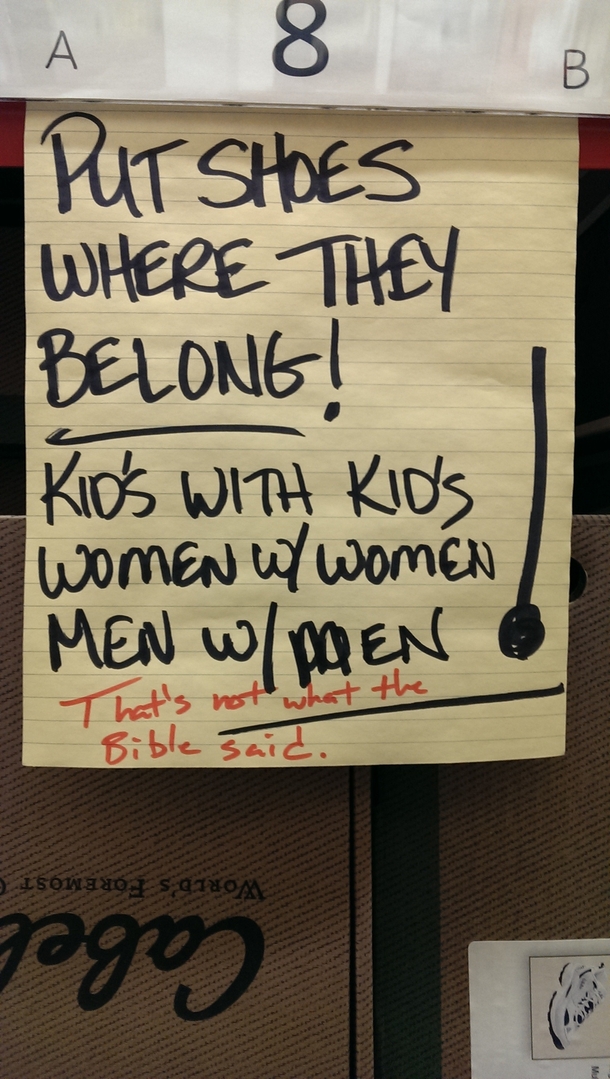 A 8 B
PUT SHOES
WHERE THEY
BELONG!
KID'S WITH KID'S
WOMEN W/ WOMEN
MEN W/ MEN
That's not what the
Bible said.
WORLD'S FOREMOST
Cabel